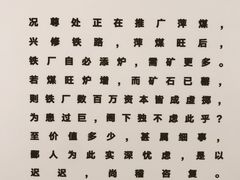 况尊处正在推广萍煤，
兴修铁路，萍煤旺后，
铁厂自必添炉，需矿更多。
若煤旺炉增，而矿石已罄，
则铁厂数百万资本皆成虚掷，
为患过巨，阁下独不虑此乎？
至价值多少，甚属细事，
鄙人为此实深忧虑，是以
迟迟，尚稽咨复。